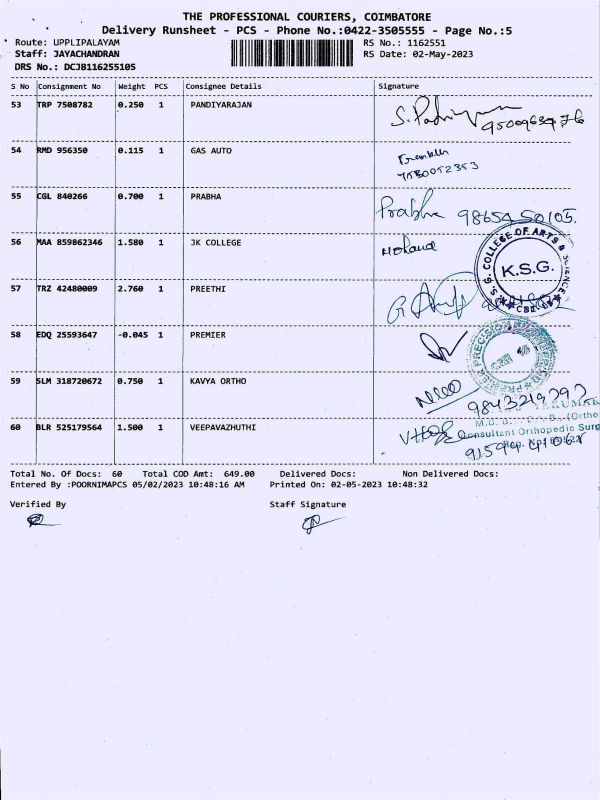 THE PROFESSIONAL COURIERS, COIMBATORE
Delivery Runsheet - PCS - Phone No.:0422-3505555 - Page No.:5
Route: UPPLIPALAYAM RS No.: 1162551
Staff: JAYACHANDRAN RS Date: 02-May-2023
DRS No.: DCJB116255105
S No Consignment No Weight PCS Consignee Details Signature
53 TRP 7508782 0.250 1 PANDIYARAJAN
54 RMD 956350 0.115 1 GAS AUTO
55 CGL 840266 0.700 1 PRABHA Prabha 98654 50105
56 MAA 859862346 1.580 1 JK COLLEGE
K.S.G. COLLEGE OF ARTS & SCIENCE
K.S.G.
57 TRZ 42480009 2.760 1 PREETHI
58 EDQ 25593647 -0.045 1 PREMIER
PRECISION
59 SLM 318720672 0.750 1 KAVYA ORTHO
Consultant Orthopedic Surg
60 BLR 525179564 1.500 1 VEEPAVAZHUTHI
Total No. Of Docs: 60 Total COD Amt: 649.00 Delivered Docs: Non Delivered Docs:
Entered By :POORNIMAPCS 05/02/2023 10:48:16 AM Printed On: 02-05-2023 10:48:32
Verified By Staff Signature